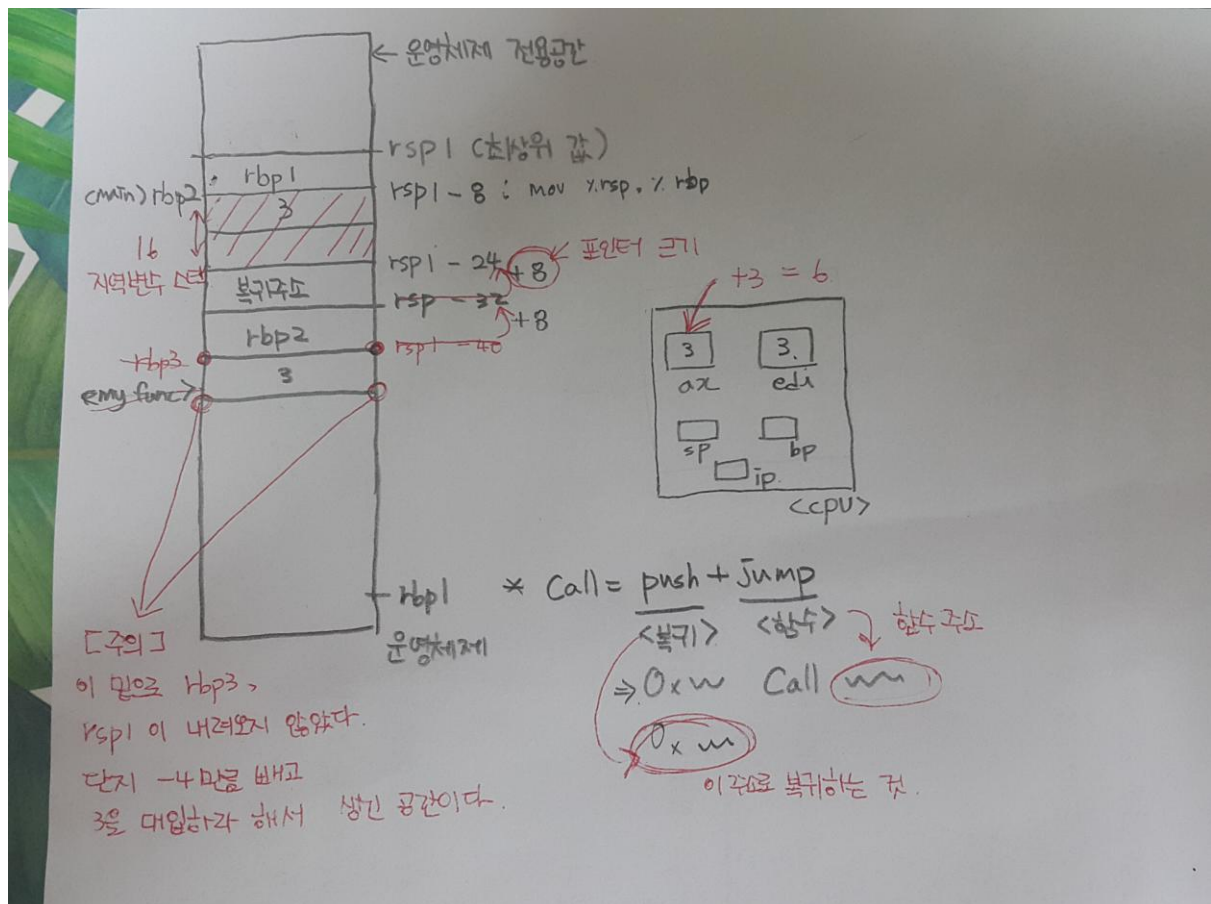 ← 운영체제 전용공간
rsp1 (최상위 값)
rbp1
(main) rbp2
rsp1 - 8 : mov %rsp, % rbp
3
16
지역변수 스택
rsp1 - 24
+8
← 포인터 크기
복귀주소
rsp - 32
+8
rbp2
rbp3
rsp1 - 40
<my func>
3
+3 = 6
3
3.
ax
edi
sp
bp
ip
<cpu>
rbp1
운영체제
* Call = push + jump
<복귀>
<함수>
함수 주소
⇒ 0x
Call
0x
이 주소로 복귀하는 것.
[주의]
이 밑으로 rbp3,
rsp1 이 내려오지 않았다.
단지 -4만큼 빼고
3을 대입하라 해서 생긴 공간이다.